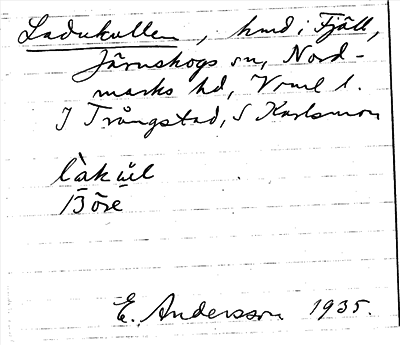 Ladukullen, hmd i Fjäll,
Järnskogs sn, Nord-
marks hd, Vrml l.
I Trångstad, S Karlsmon
låkūl
Böre
E. Andersson 1935.